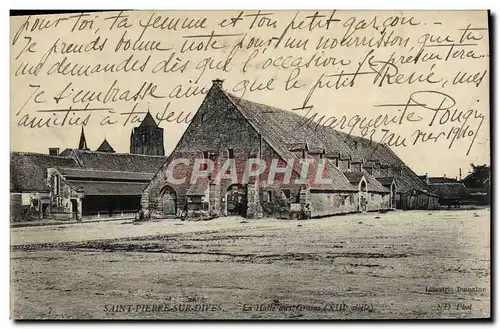 pour toi, ta femme et ton petit garçon. —
Je prends bonne note pour un nourrisson que tu
me demandes dès que l'occasion se présentera.
Je t'embrasse ainsi que le petit René, mes
amitiés à ta femme Marguerite Pougy
Janvier 1910
CARPHILA
Librairie Domaine
SAINT-PIERRE-SUR-DIVES. La Halle aux Grains (XIIIe siècle)
ND Phot